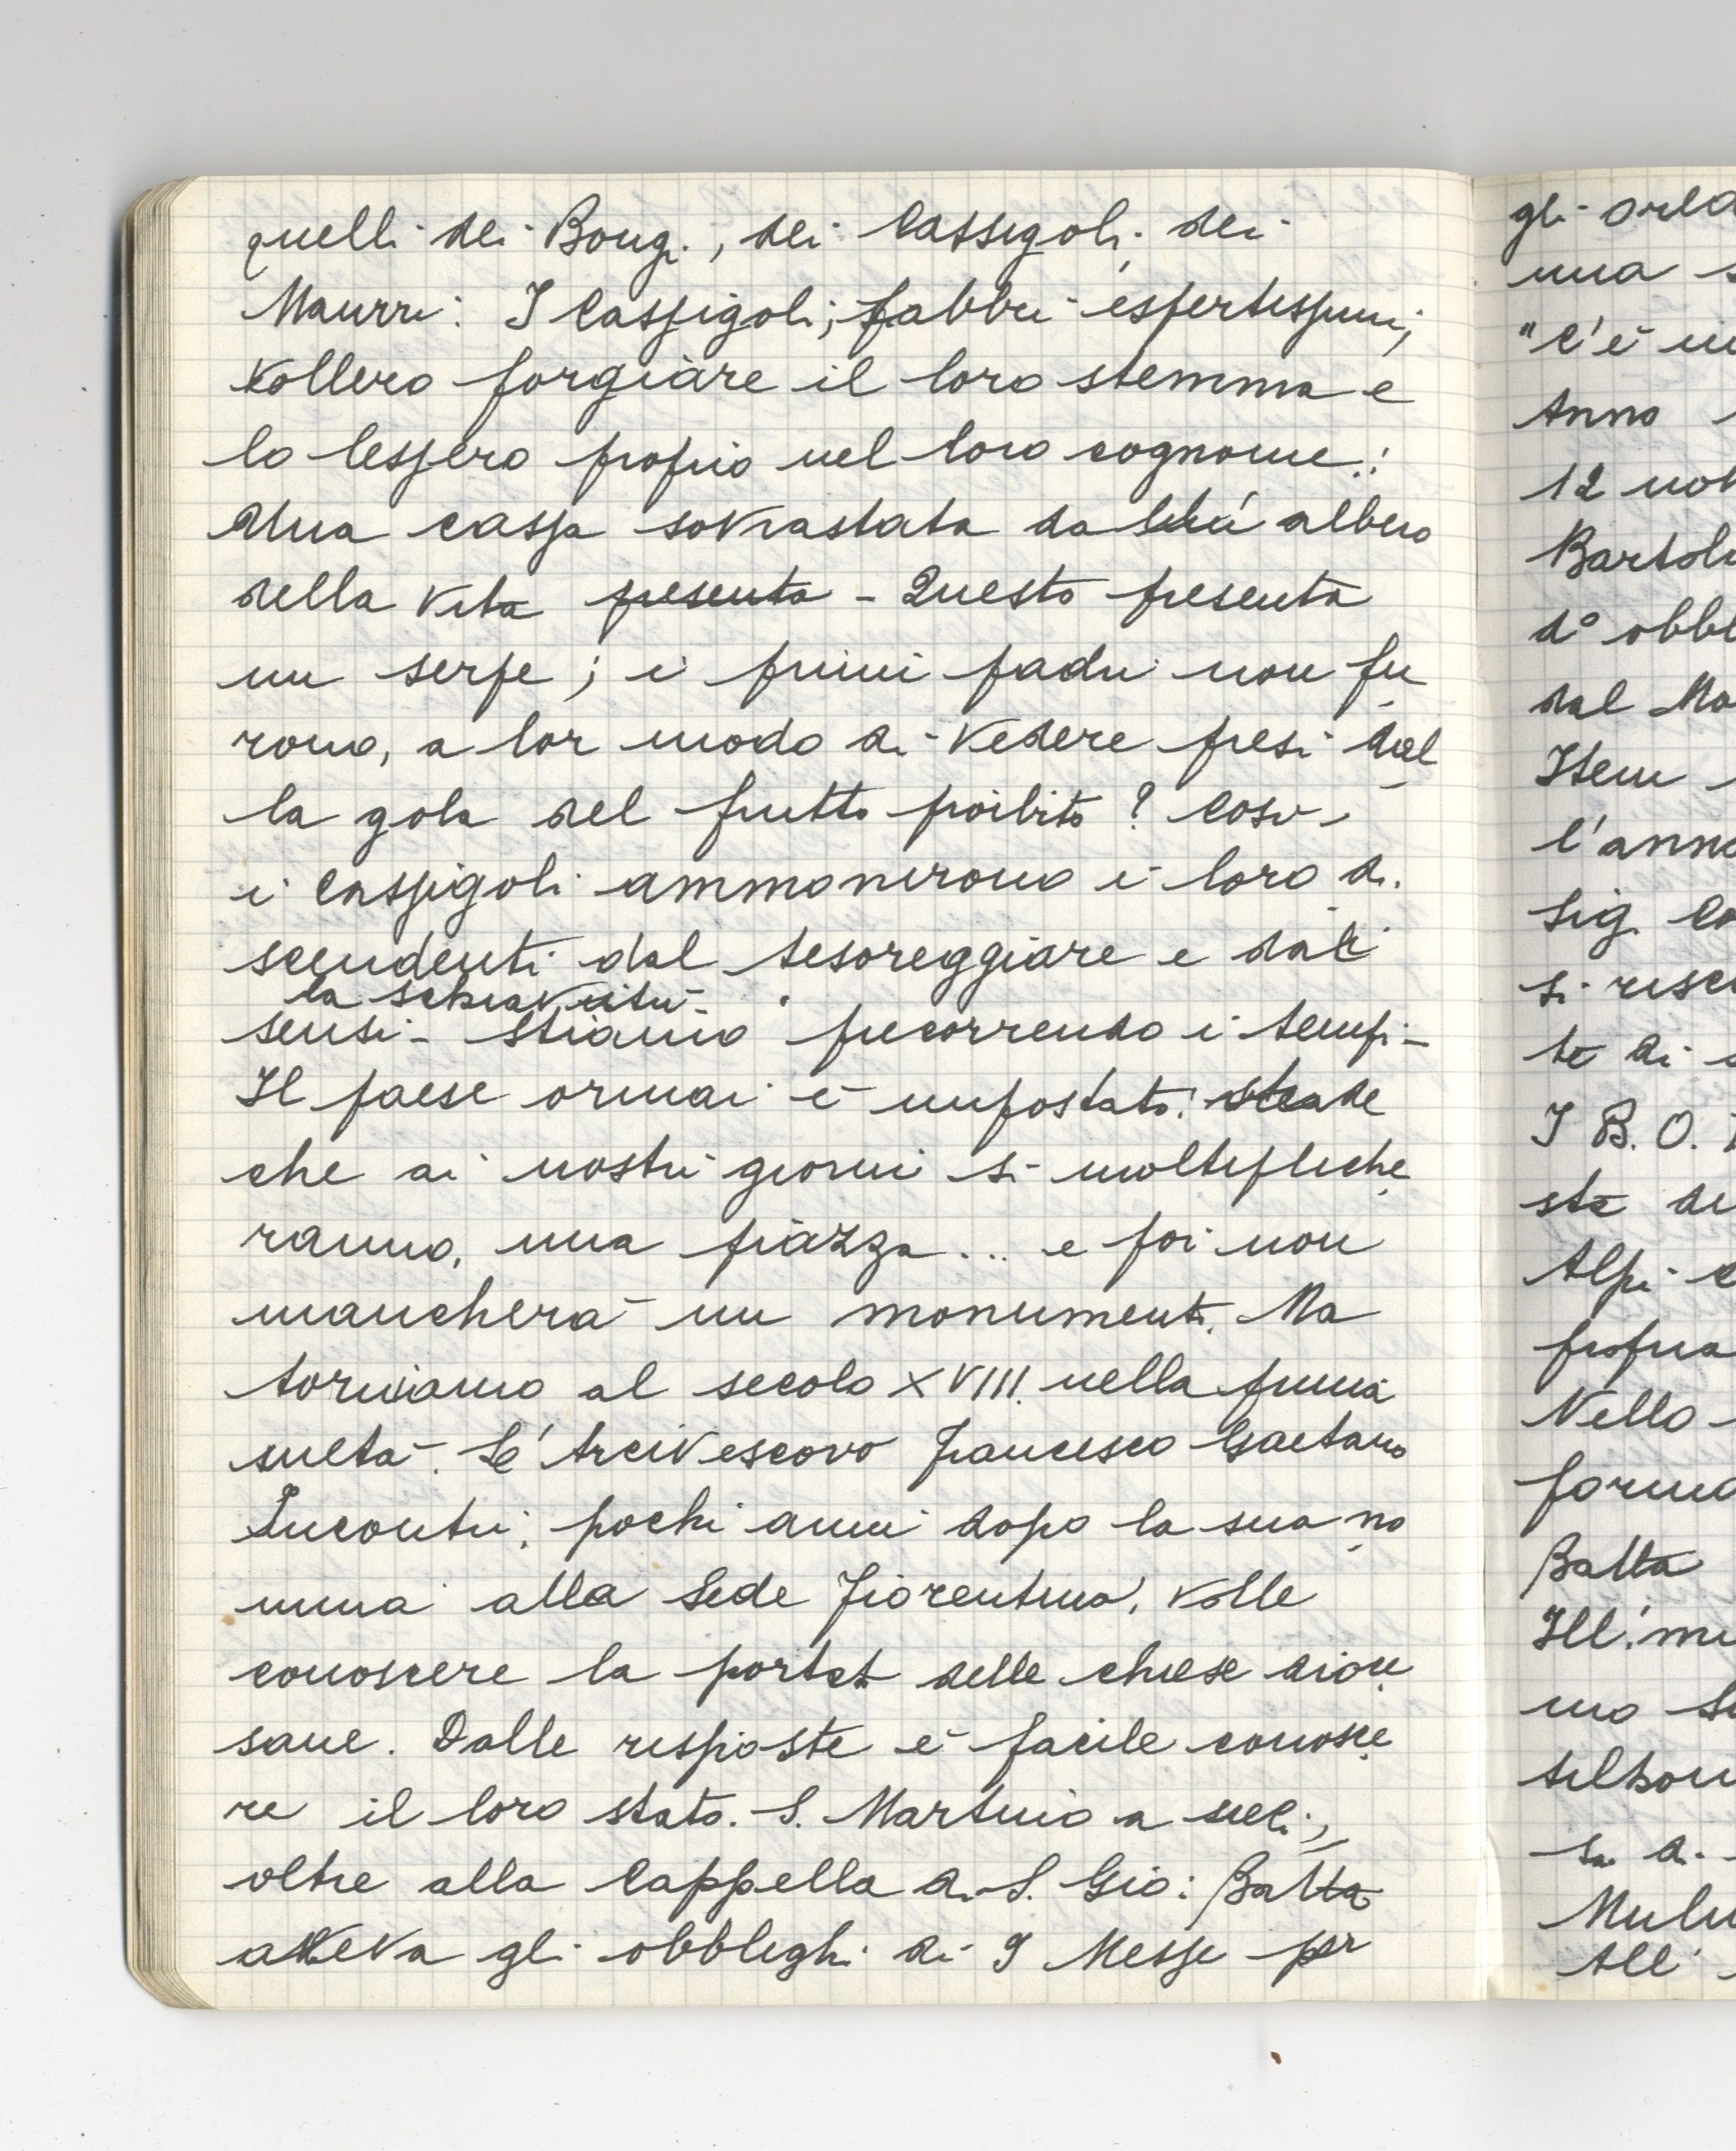 quelli dei Bongi, dei Cassigoli, dei
Maurri. I Cassigoli, fabbri espertissimi,
vollero forgiare il loro stemma e
lo lessero proprio nel loro cognome:
Una cassa sovrastata da albero
della vita presenta - Questo presenta
un serpe; i primi padri non fu
rono, a lor modo di vedere presi dal
la gola del frutto proibito? Così
i Cassigoli ammonirono i loro di
scendenti dal tesoreggiare e dalla schiavitù
sensi - Stiamo precorrendo i tempi -
Il paese ormai è impostato: strade
che ai nostri giorni si moltipliche
ranno, una piazza... e poi non
mancherà un monumento. Ma
torniamo al secolo XVIII nella prima
metà. L'Arcivescovo Francesco Gaetano
Incontri, pochi anni dopo la sua no
mina alla Sede Fiorentina, volle
conoscere la portata delle chiese dioce
sane. Dalle risposte è facile conosce
re il loro stato. S. Martino a
oltre alla Cappella di S. Gio: Batta
aveva gli obblighi di 9 Messe per
gli
una
"C'è
Anno
12
d°
dal
Item
l'anno
Sig.
si
te di
I B. O.
Alpi
Nello
Batta